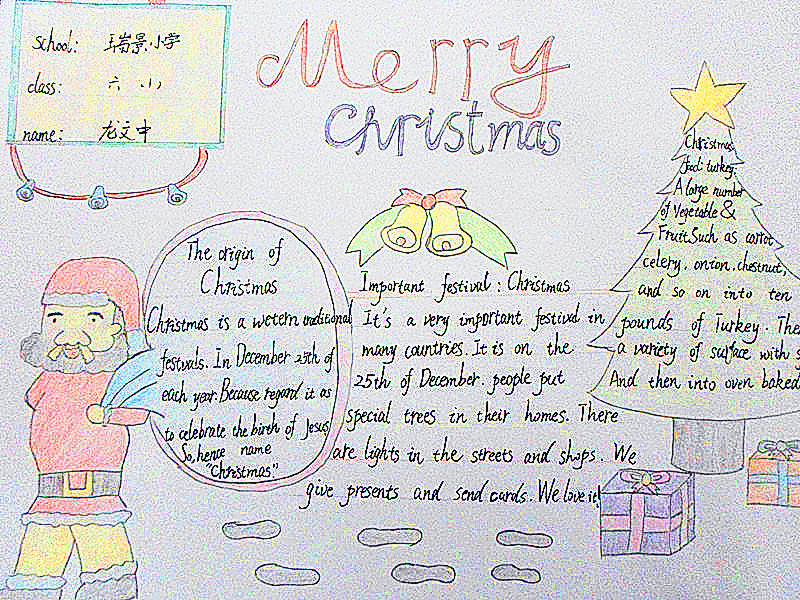 school: 瑞景小学
class: 六、小
name: 龙文中
Merry
Christmas
The origin of
Christmas
Christmas is a wetern traditional
festivals. In December 25th of
each year. Because regard it as
to celebrate the birth of Jesus
So, hence name
"Christmas"
Important festival : Christmas
It's a very important festival in
many countries. It is on the
25th of December. people put
special trees in their homes. There
are lights in the streets and shops. We
give presents and send cards. We love it!
Christmas
food: turkey.
A large number
of Vegetable &
Fruit. Such as carrot
celery, onion, chestnut,
and so on into ten
pounds of Turkey. The
a variety of surface with s
And then into oven baked